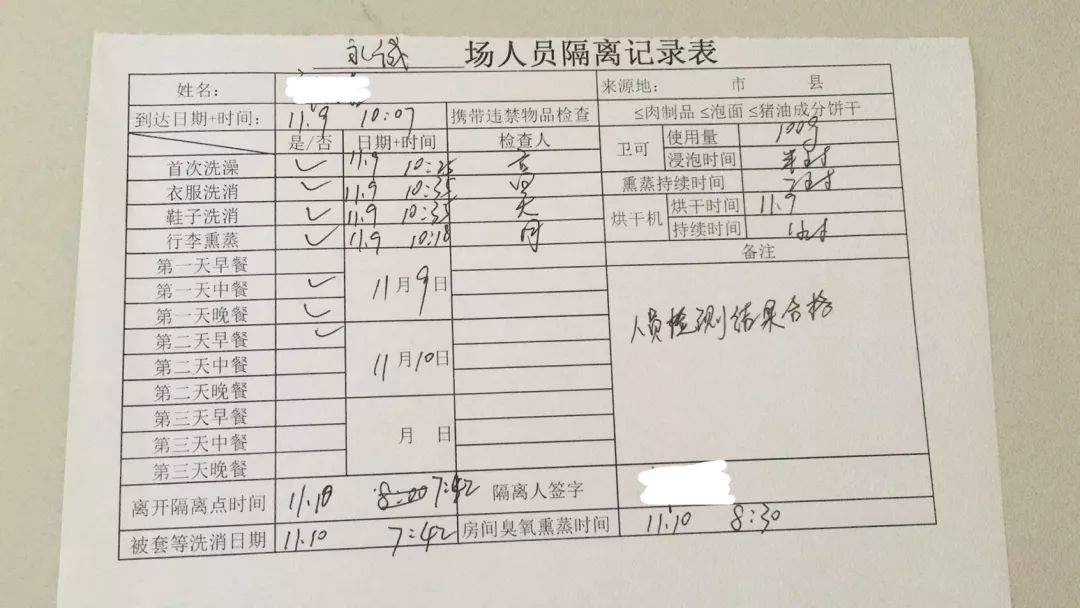 永城 场人员隔离记录表
姓名: 来源地: 市 县
到达日期+时间: 11.9 10:07 携带违禁物品检查 ≤肉制品 ≤泡面 ≤猪油成分饼干
是/否 日期+时间 检查人 卫可 使用量 100g
首次洗澡 ✓ 11.9 10:25 浸泡时间
衣服洗消 ✓ 11.9 10:35 熏蒸持续时间
鞋子洗消 ✓ 11.9 10:35 烘干机 烘干时间 11.9
行李熏蒸 ✓ 11.9 10:18 持续时间
第一天早餐 备注
第一天中餐 ✓ 11月9日
第一天晚餐 ✓ 人员检测结果合格
第二天早餐 ✓
第二天中餐 11月10日
第二天晚餐
第三天早餐
第三天中餐 月 日
第三天晚餐
离开隔离点时间 11.10 8:00 7:42 隔离人签字
被套等洗消日期 11.10 7:42 房间臭氧熏蒸时间 11.10 8:30